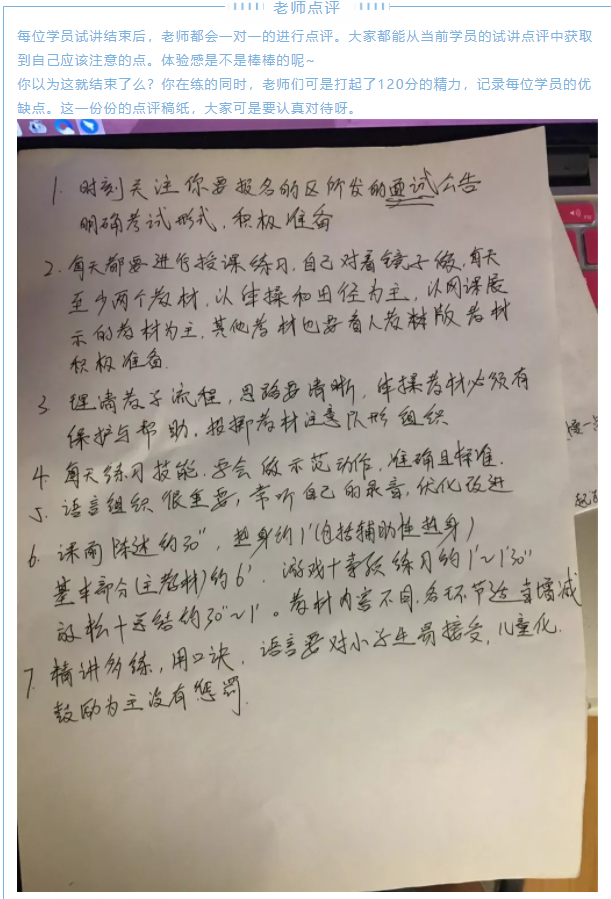 老师点评
每位学员试讲结束后，老师都会一对一的进行点评。大家都能从当前学员的试讲点评中获取
到自己应该注意的点。体验感是不是棒棒的呢~
你以为这就结束了么？你在练的同时，老师们可是打起了120分的精力，记录每位学员的优
缺点。这一份份的点评稿纸，大家可是要认真对待呀。
1. 时刻关注你要报名的区所发的面试公告
明确考试形式，积极准备
2. 每天都要进行授课练习，自己对着镜子做，每天
至少两个教材，以体操和田径为主，以网课展
示的教材为主，其他教材也要看人教版教材
积极准备.
3. 理清教学流程，思路要清晰，体操教材必须有
保护与帮助，投掷教材注意队形组织
4. 每天练习技能，学会做示范动作，准确且标准.
5. 语言组织很重要，常听自己的录音，优化改进
6. 课前陈述约30"，热身约1'(包括辅助性热身)
基本部分(主教材)约6'，游戏+素质练习约1'~1'30"
放松+小结约30"~1'。教材内容不同，各环节适当增减
7. 精讲多练，用口诀，语言要对小学生易接受，儿童化.
鼓励为主没有惩罚.